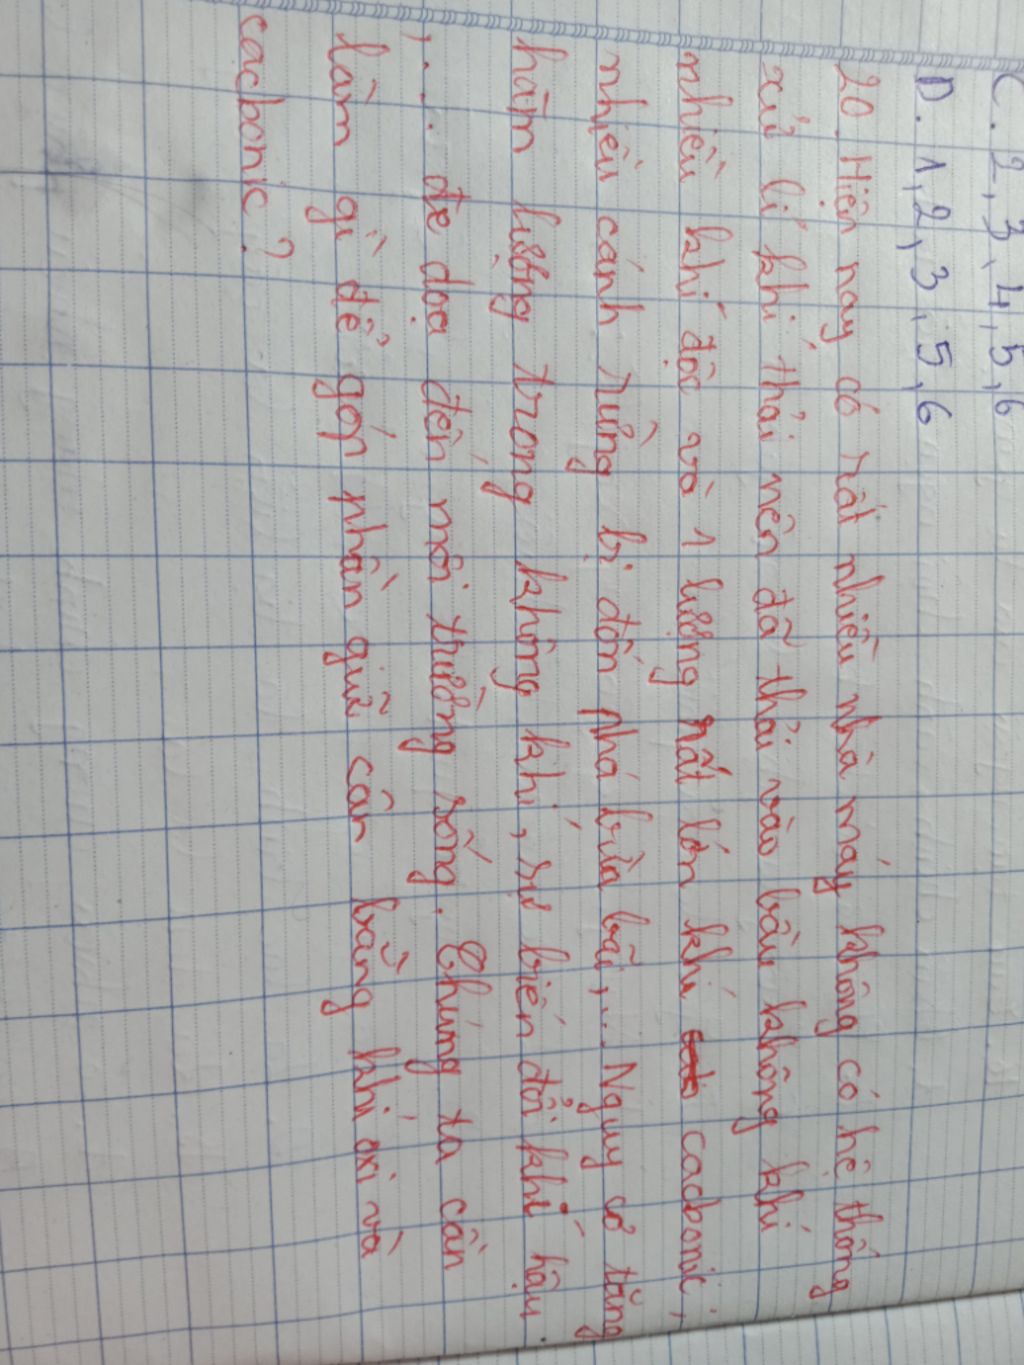 C. 2, 3, 4, 5, 6
D. 1, 2, 3, 5, 6
20. Hiện nay có rất nhiều nhà máy không có hệ thống
xử lí khí thải nên đã thải vào bầu không khí
nhiều khí độc và 1 lượng rất lớn khí cacbonic,
nhiều cánh rừng bị đốn phá bừa bãi,... Nguy cơ tăng
hàm lượng trong không khí, sự biến đổi khí hậu
,... đe dọa đến môi trường sống. Chúng ta cần
làm gì để góp phần giữ cân bằng khí oxi và
cacbonic?